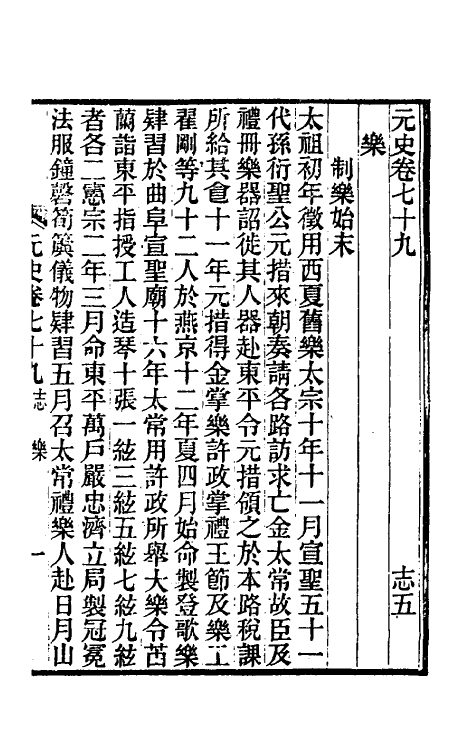 元史卷七十九　志五
樂
制樂始末
太祖初年徵用西夏舊樂太宗十年十一月宣聖五十一
代孫衍聖公元措來朝奏請各路訪求亡金太常故臣及
禮冊樂器詔徙其人器赴東平令元措領之於本路稅課
所給其食十一年元措得金掌樂許政掌禮王節及樂工
翟剛等九十二人於燕京十二年夏四月始命製登歌樂
肄習於曲阜宣聖廟十六年太常用許政所舉大樂令苫
蘭詣東平指授工人造琴十張一絃三絃五絃七絃九絃
者各二憲宗二年三月命東平萬戶嚴忠濟立局製冠冕
法服鐘磬筍簴儀物肄習五月召太常禮樂人赴日月山
元史卷七十九 志 樂 一